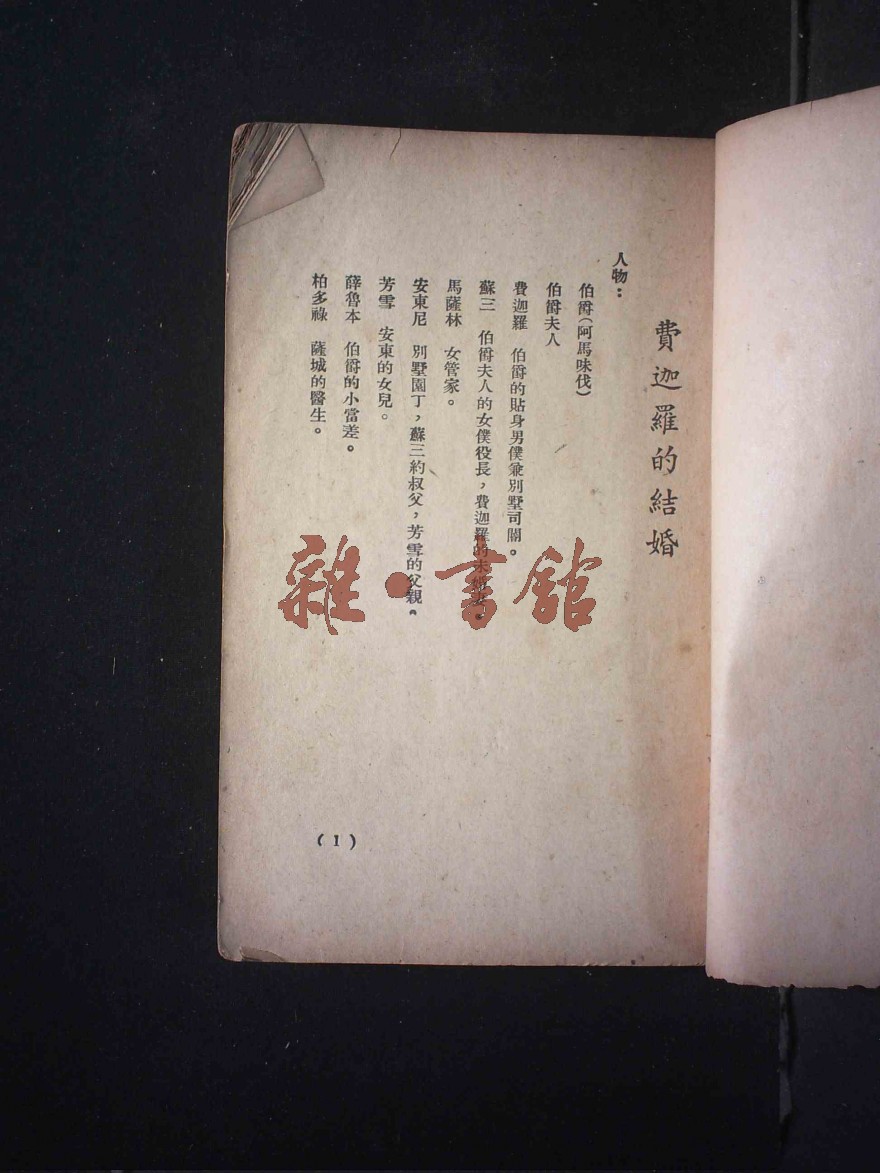 費迦羅的結婚
人物：
伯爵（阿馬味伐）
伯爵夫人
費迦羅　伯爵的貼身男僕兼別墅司閽。
蘇三　伯爵夫人的女僕役長，費迦羅的未婚妻。
馬薩林　女管家。
安東尼　別墅園丁，蘇三約叔父，芳雪的父親。
芳雪　安東的女兒。
薛魯本　伯爵的小當差。
柏多祿　薩城的醫生。
（1）
雜·書館